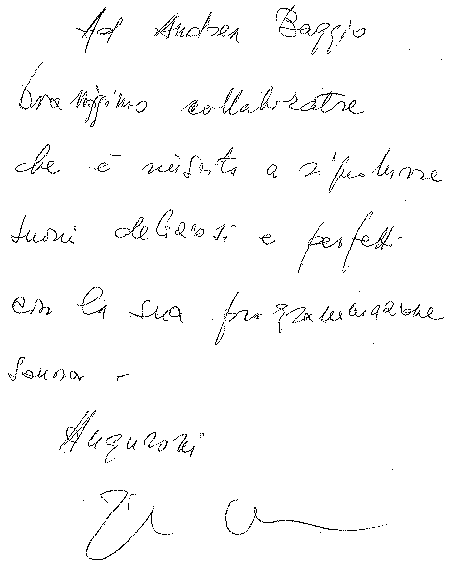 Ad Andrea Baggio
bravissimo collaboratore
che è riuscito a riprodurre
suoni deliziosi e perfetti
con la sua programmazione
sonora -
Auguroni